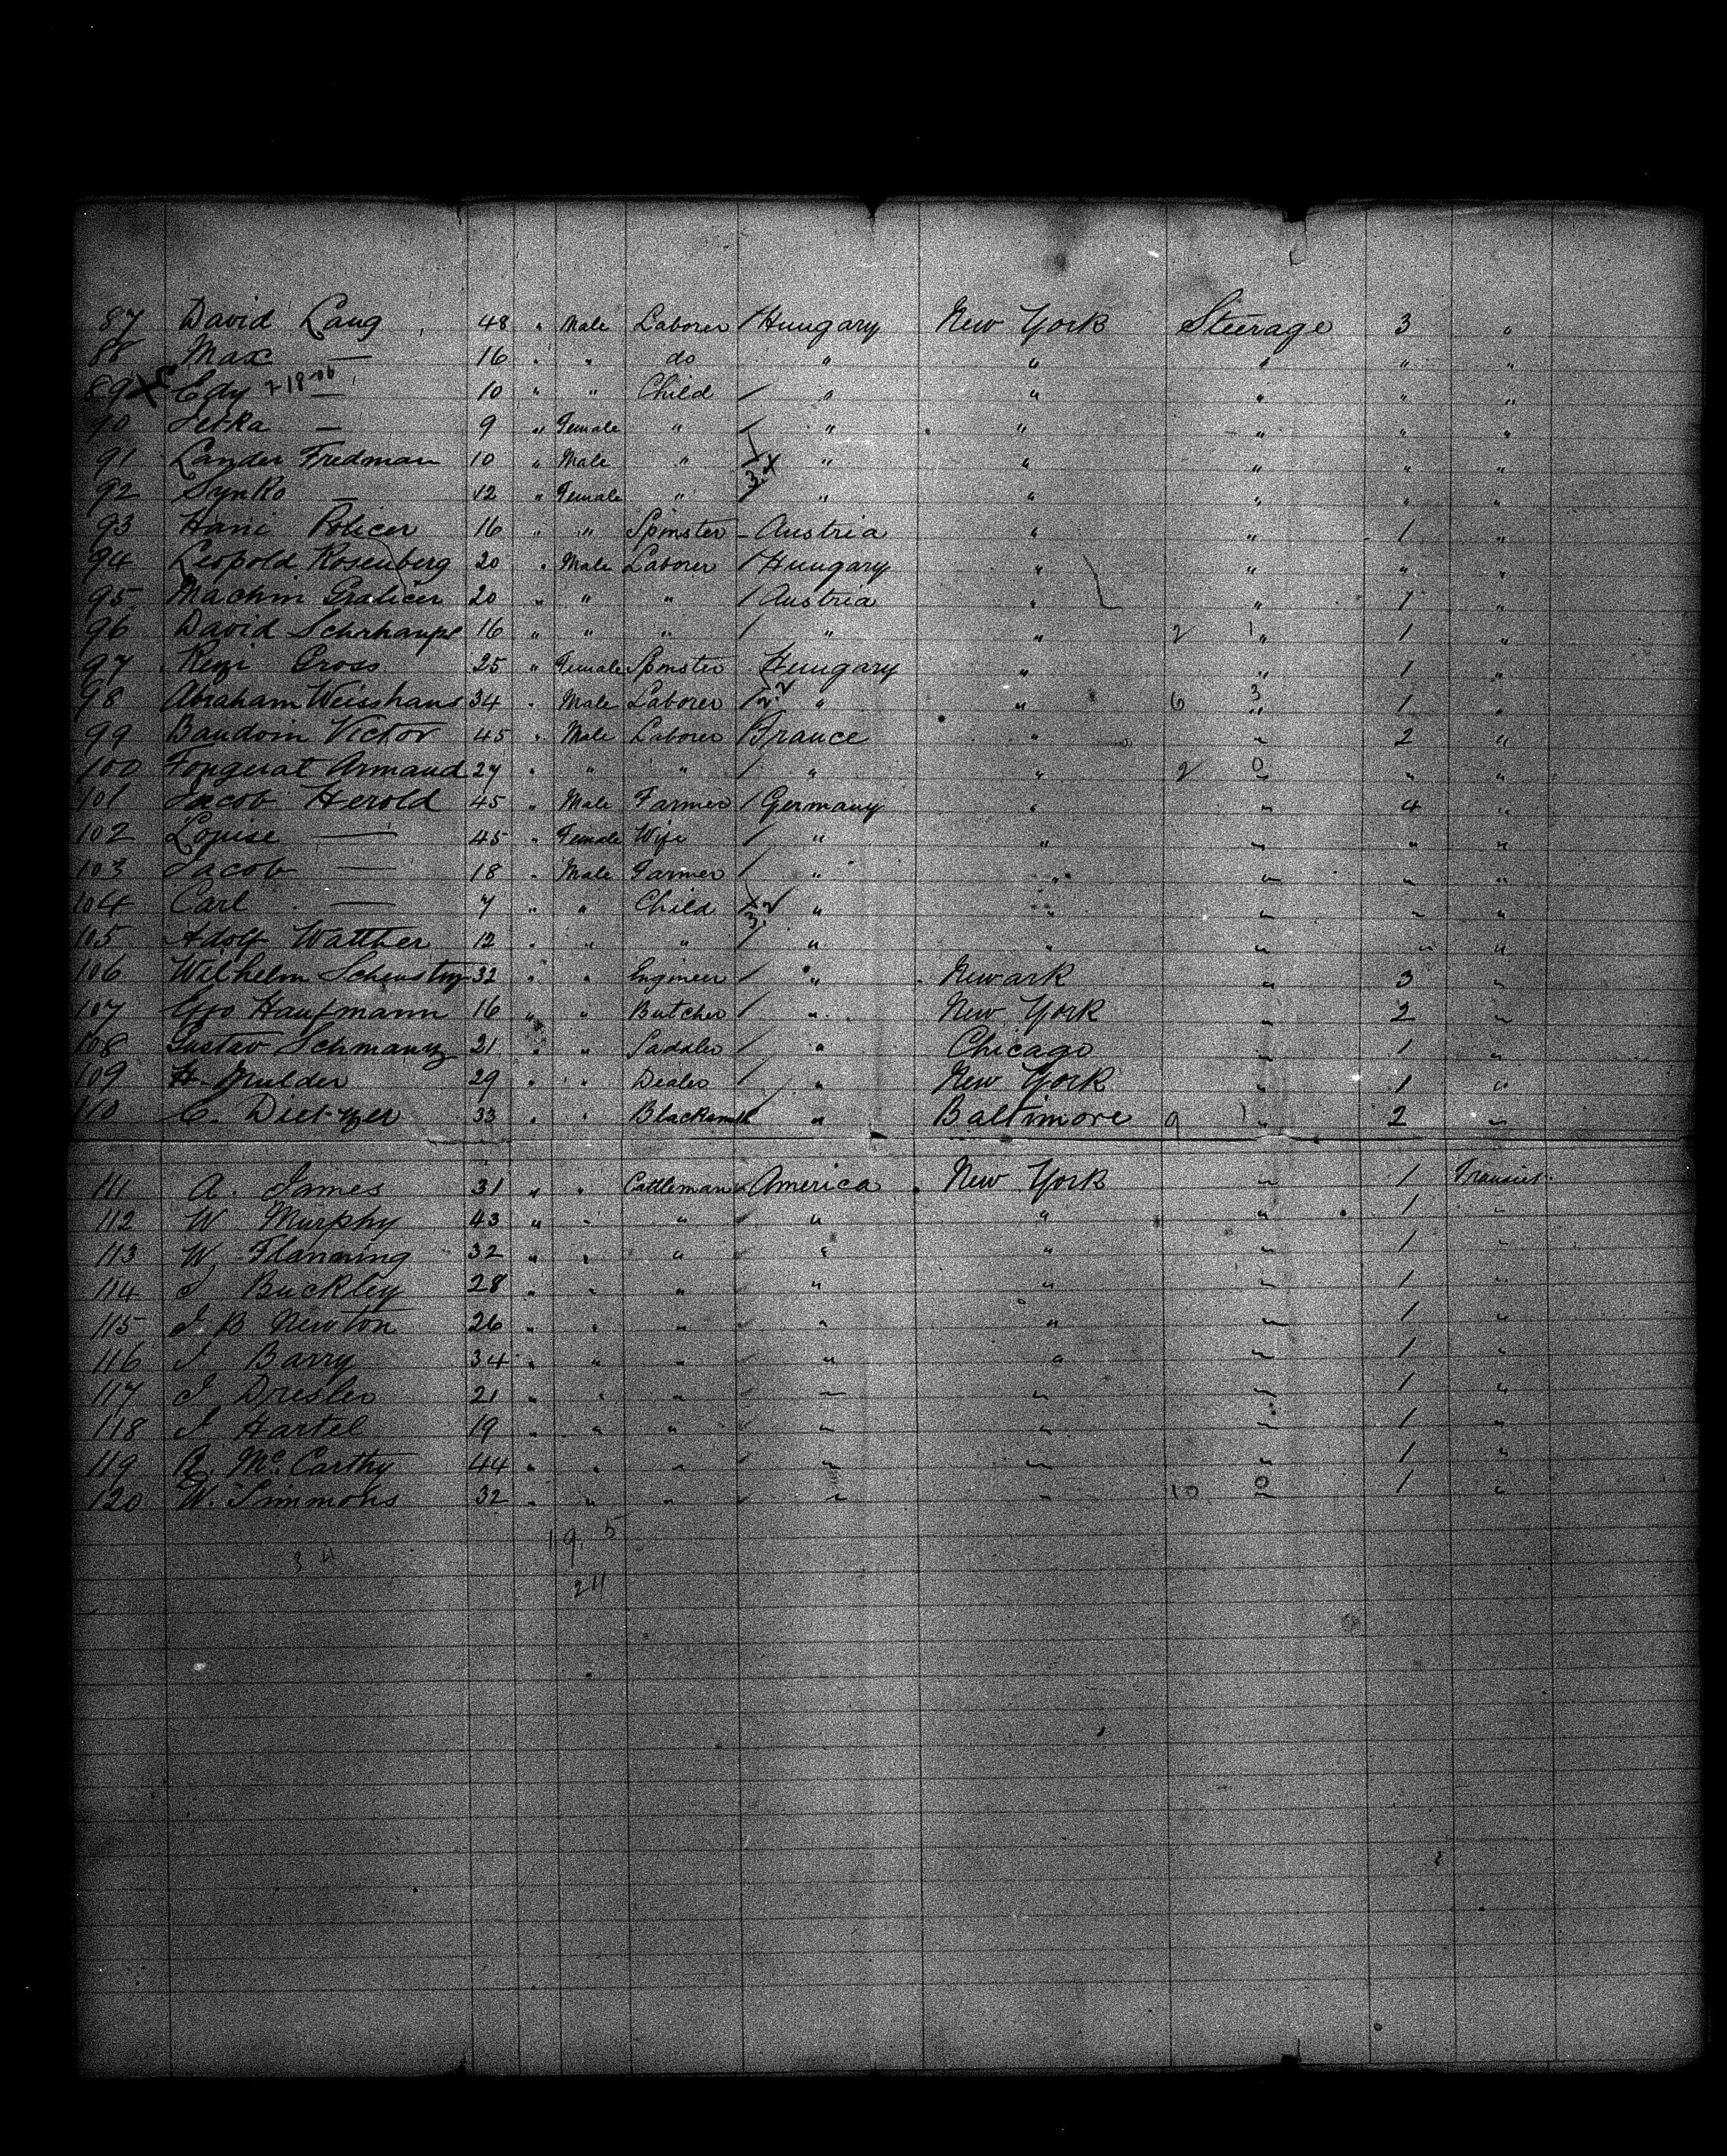 87 David Lang 48 " Male Laborer / Hungary New York Steerage 3 "
88 Max — 16 " " do " " " " "
89 X Edy 2-18-06 — 10 " " Child / " " " " "
90 Jetka — 9 " Female " / " " " " "
91 Lander Fredman 10 " Male " " " " " "
92 Synko — 12 " Female " / " " " " "
93 Hani Policer 16 " " Spinster - Austria " " 1 "
94 Leopold Rosenberg 20 " Male Laborer / Hungary " " " "
95 Machin Gralicer 20 " " " / Austria " " 1 "
96 David 16 " " " / " " 2 1 " 1 "
97 Rezi Gross 25 " Female Spinster Hungary " " 1 "
98 Abraham Weisshaus 34 " Male Laborer / 2.2 " " 6 3 " 1 "
99 Baudoin Victor 45 " Male Laborer / France " " 2 "
100 Fougerat Armand 27 " " " / " " 2 0 " " "
101 Jacob Herold 45 " Male Farmer / Germany " " 4 "
102 Louise — 45 " Female Wife / " " " " "
103 Jacob — 18 " Male Farmer / " " " " "
104 Carl — 7 " " Child " " " " "
105 Adolf Walther 12 " " " / " " " " "
106 Wilhelm 32 " " Engineer / " Newark " 3 "
107 Geo Haufmann 16 " " Butcher / " New York " 2 "
108 Gustav Schmanz 21 " " Saddler / " Chicago " 1 "
109 H. Mulder 29 " " Dealer / " New York " 1 "
110 C. Dietzer 33 " " Blacksmith / " Baltimore 9 1 " 2 "
111 A. James 31 " " Cattleman America New York " 1 Transit
112 W Murphy 43 " " " " " " 1 "
113 W. Flanning 32 " " " " " " 1 "
114 J Buckley 28 " " " " " " 1 "
115 J. B Newton 26 " " " " " " 1 "
116 J Barry 34 " " " " " " 1 "
117 J Dresler 21 " " " " " " 1 "
118 J Hartel 19 " " " " " " 1 "
119 R. McCarthy 44 " " " " " " 1 "
120 W. Simmons 32 " " " " " 10 0 " 1 "
19. 5
3 4